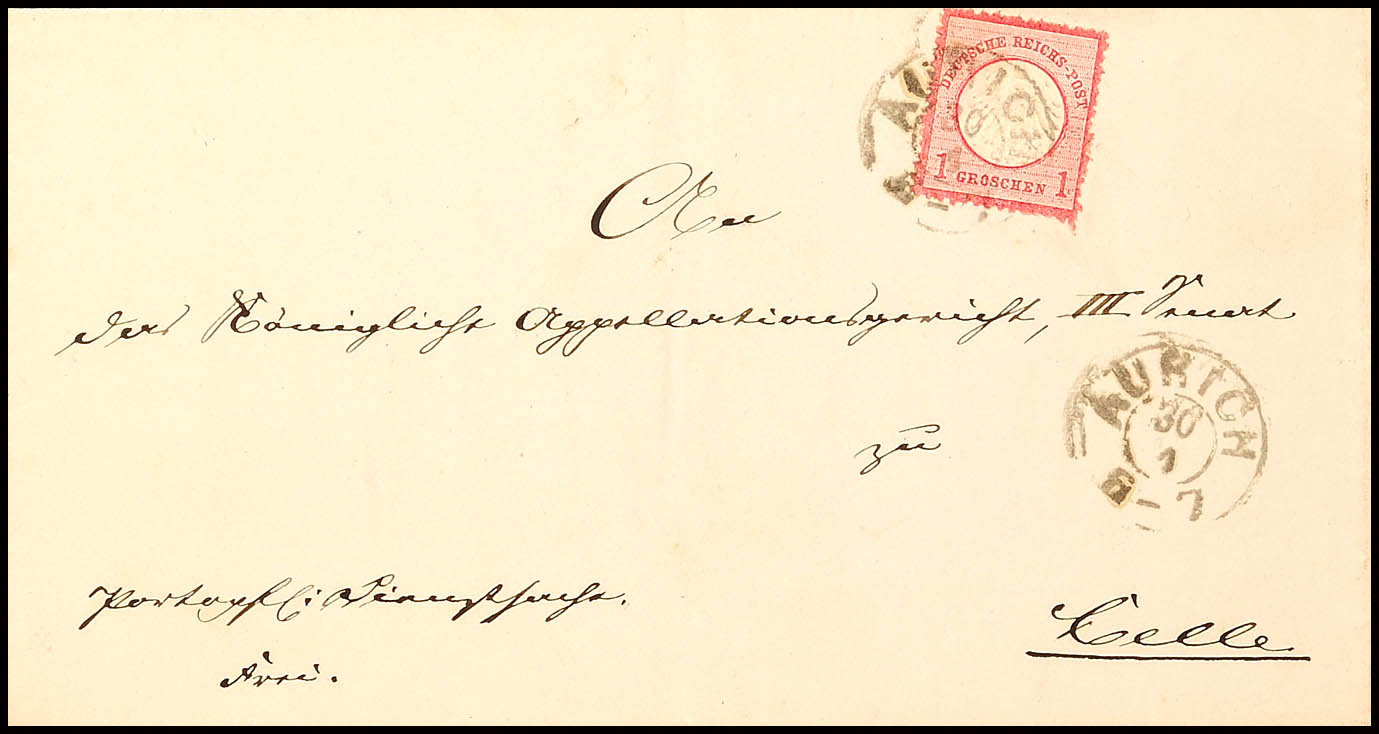 DEUTSCHE REICHS-POST
1 GROSCHEN 1
AURICH
An
das Königliche Appellationsgericht, III Senat
AURICH
30
1
zu
5-7
Portopfl: Dienstsache.
Celle
Frei.